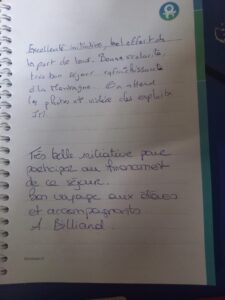 Excellente initiative, bel effort de
la part de tous. Bonne scolarité,
très bon séjour rafraîchissante
à la Montagne. On attend
les photos et vidéos des exploits
Très belle initiative pour
participer au financement
de ce séjour.
Bon voyage aux élèves
et accompagnants
A. Billiand.